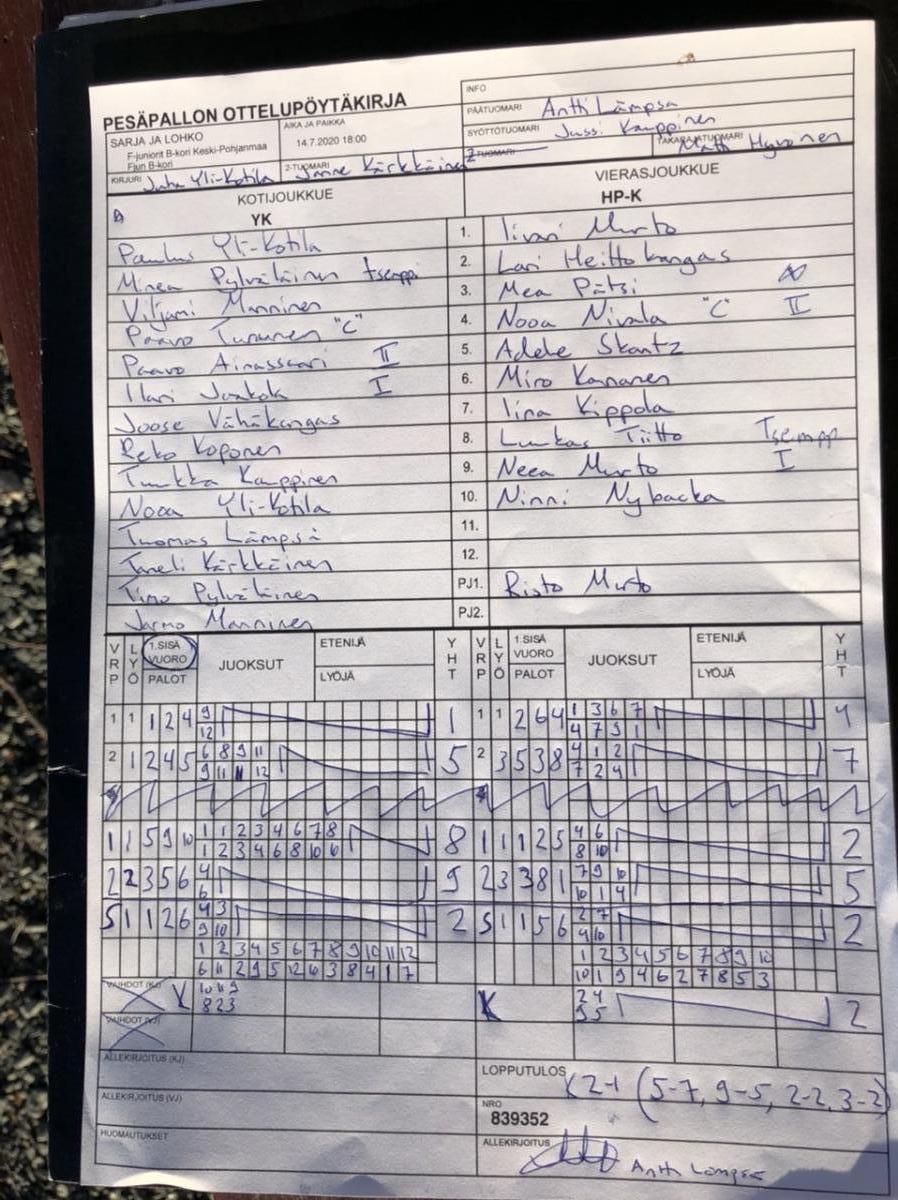 PESÄPALLON OTTELUPÖYTÄKIRJA
INFO
PÄÄTUOMARI Antti Lämpsä
SYÖTTÖTUOMARI Jussi Kauppinen
2-TUOMARI TAKARAJATUOMARI Matti Hyvönen
SARJA JA LOHKO
F-juniorit B-kori Keski-Pohjanmaa
Fjun B-kori
AIKA JA PAIKKA
14.7.2020 18:00
KIRJURI Juha Yli-Kotila 2-TUOMARI Janne Kärkkäinen
KOTIJOUKKUE
YK
VIERASJOUKKUE
HP-K
Paulus Yli-Kotila 1. Iivari Murto
Minea Pylväläinen tsemppi 2. Lari Heittokangas
Viljami Manninen 3. Mea Pätsi
Paavo Turunen "C" 4. Nooa Nivala "C" II
Paavo Ainassaari II 5. Adele Skantz
Ilari Junkala I 6. Miro Kananen
Joose Vähäkangas 7. Iina Kippola
Reko Koponen 8. Luukas Tiitto Tsempp
Tuukka Kauppinen 9. Neea Murto I
Nooa Yli-Kotila 10. Ninni Nybacka
Tuomas Lämpsä 11.
Taneli Kärkkäinen 12.
Timo Pylväläinen PJ1. Risto Murto
Jarmo Manninen PJ2.
VRP LYÖ 1.SISÄ VUORO PALOT JUOKSUT ETENIJÄ LYÖJÄ YHT VRP LYÖ 1.SISÄ VUORO PALOT JUOKSUT ETENIJÄ LYÖJÄ YHT
1 1 1 2 4 9 1 1 1 2 6 4 1 3 6 7 4
12 4 7 9 1
2 1 2 4 5 6 8 9 11 5 2 3 5 3 8 4 1 2 7
9 11 11 12 7 2 4
1 1 5 9 10 1 1 2 3 4 6 7 8 8 1 1 1 2 5 4 6 2
1 2 3 4 6 8 10 6 8 10
2 2 3 5 6 4 9 2 3 3 8 1 7 9 10 5
6 10 1 4
S 1 1 2 6 4 3 2 S 1 1 5 6 2 7 2
9 10 4 10
1 2 3 4 5 6 7 8 9 10 11 12 1 2 3 4 5 6 7 8 9 10
6 11 2 9 5 12 10 3 8 4 1 7 10 1 9 4 6 2 7 8 5 3
VAIHDOT (KJ) K 10 11 9 K 2 4 2
8 2 3 9 5
VAIHDOT (VJ)
ALLEKIRJOITUS (KJ)
LOPPUTULOS K 2-1 (5-7, 9-5, 2-2, 3-2)
ALLEKIRJOITUS (VJ)
NRO
839352
HUOMAUTUKSET
ALLEKIRJOITUS Antti Lämpsä